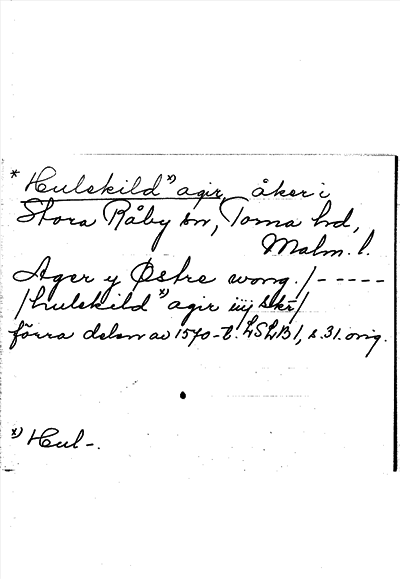 * Hulskild x) agir, åker i
Stora Råby sn, Torna hd,
Malm. l.
Ager y Østre wong. /-----
/hulskild x) agir iiij skr/
förra delen av 1570-t. LSLB 1, s. 31. orig.
x) Hul-.